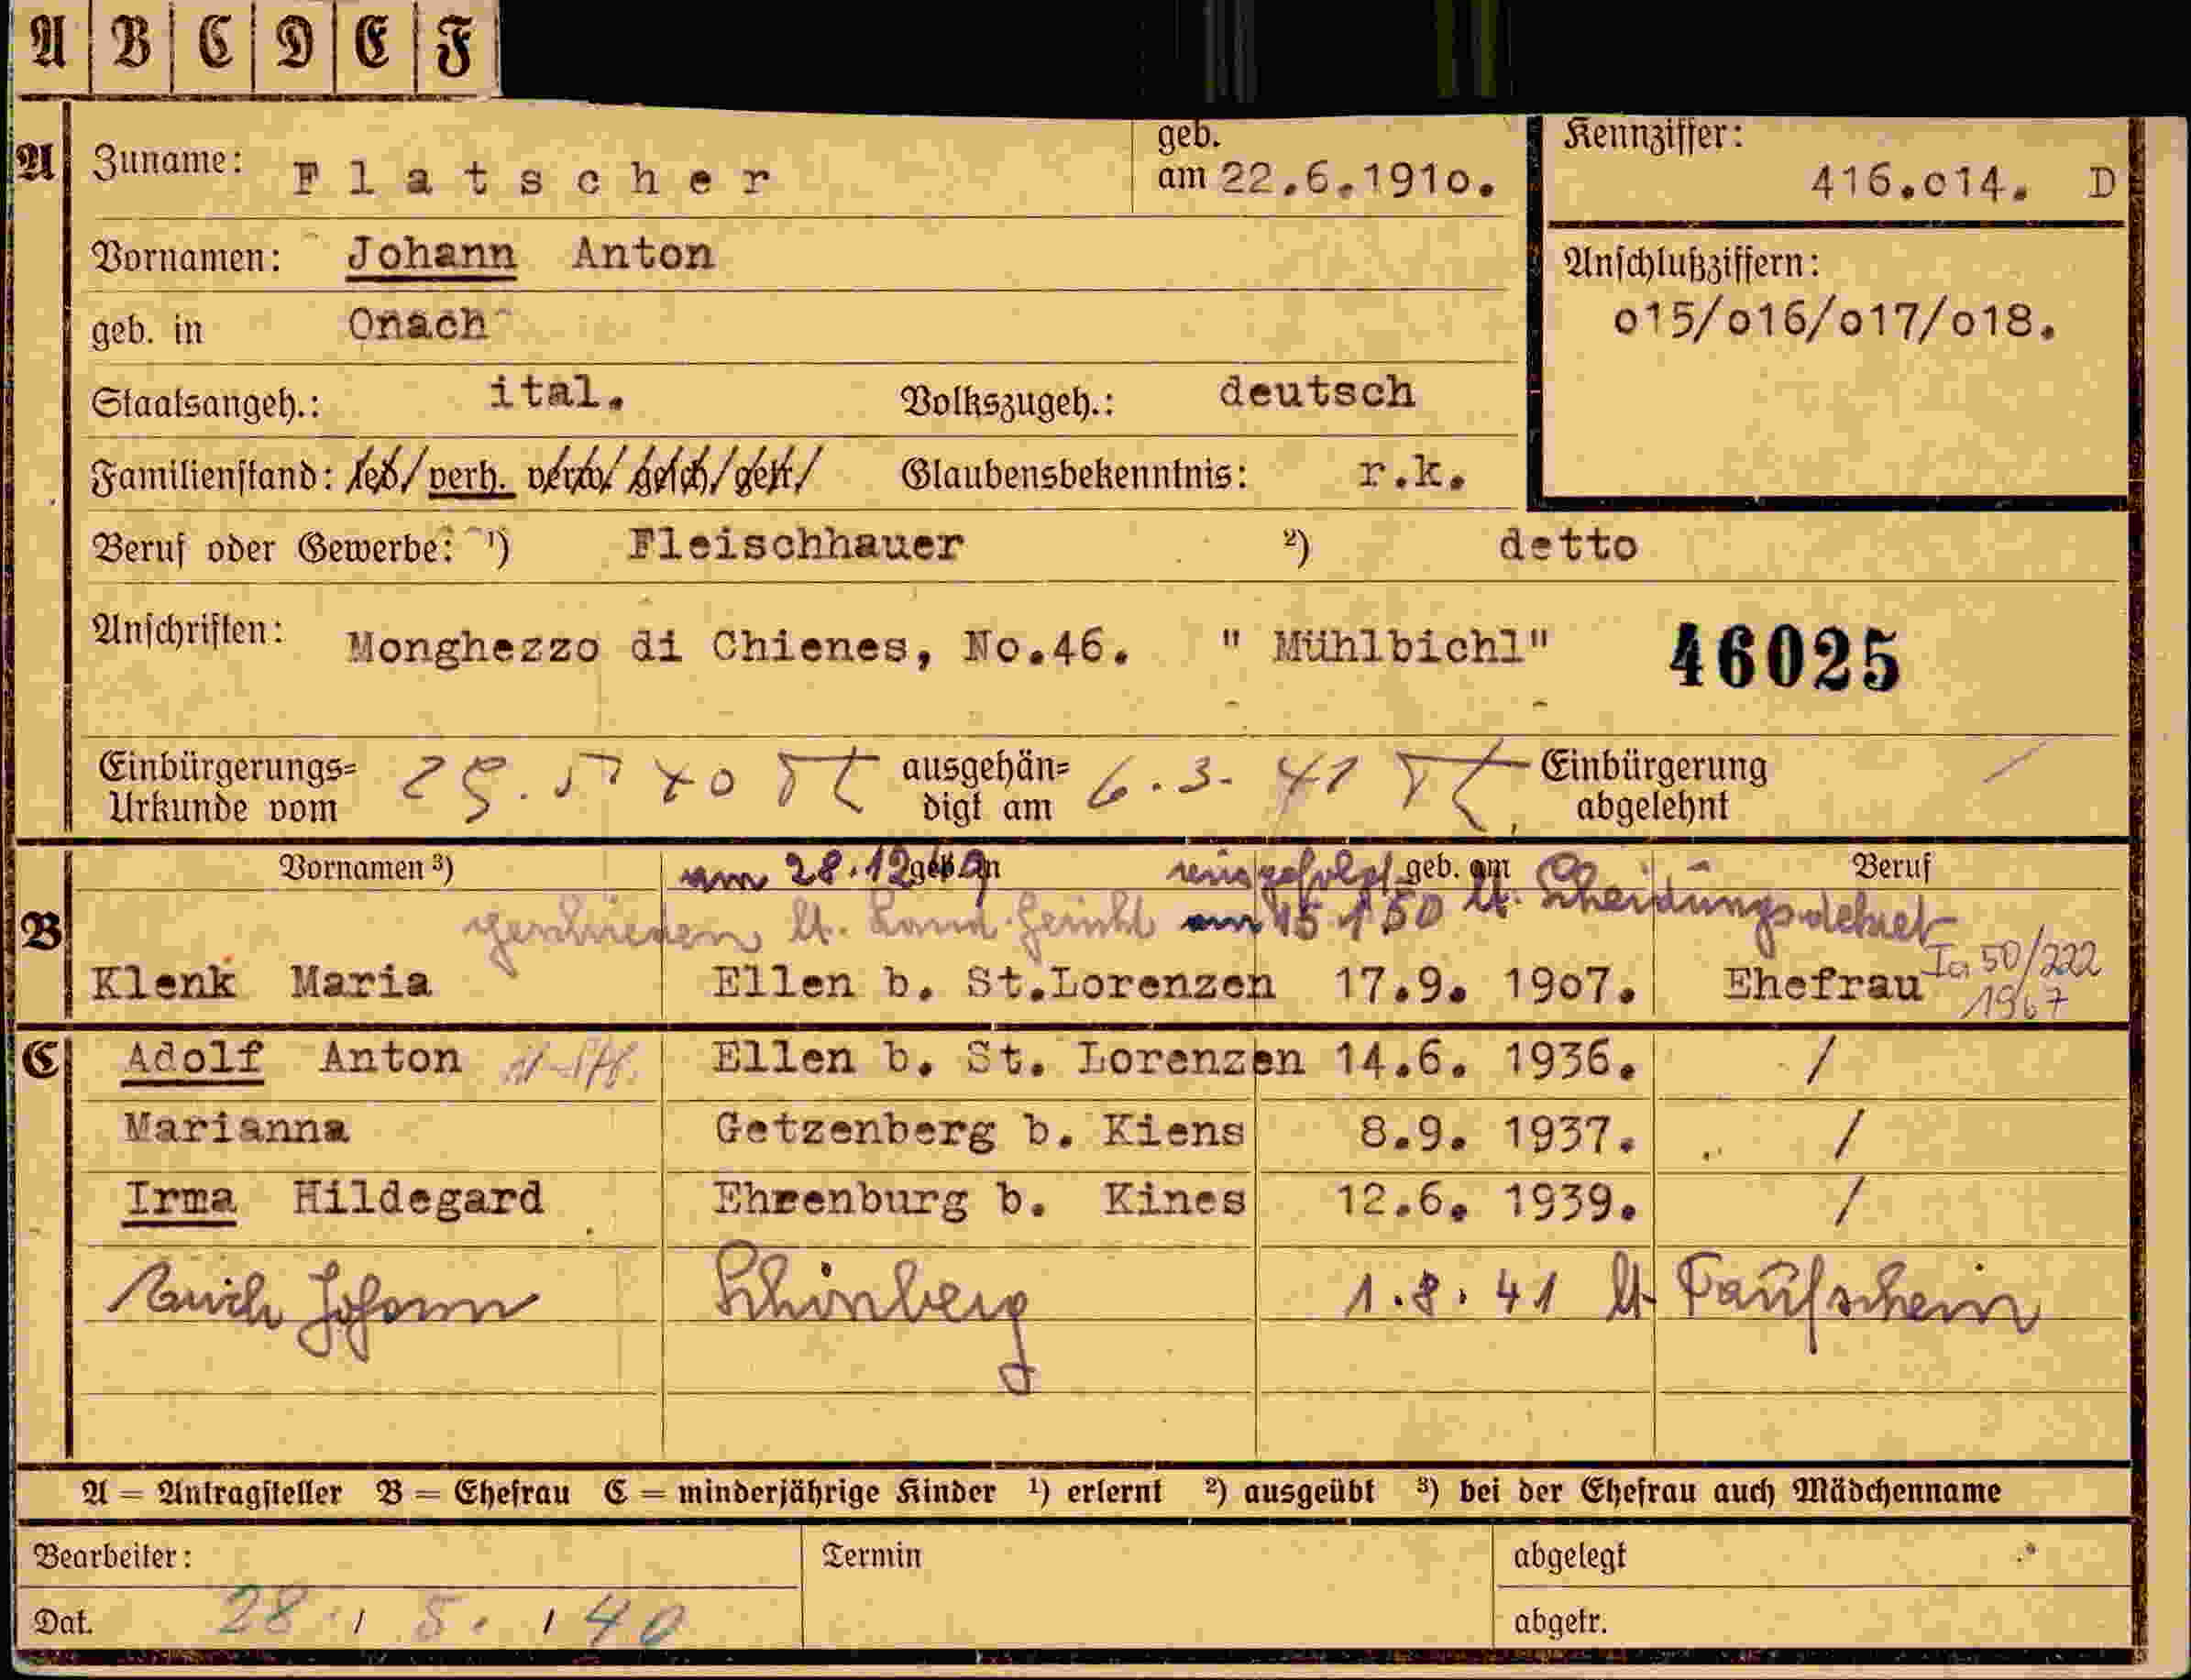 A B C D E F
A Zuname: Flatscher geb. am 22.6.1910. Kennziffer: 416.014. D
Vornamen: Johann Anton Anschlußziffern:
geb. in Onach 015/016/017/018.
Staatsangeh.: ital. Volkszugeh.: deutsch
Familienstand: led/ verh. verw/ gesch/ getr/ Glaubensbekenntnis: r.k.
Beruf oder Gewerbe: ¹) Fleischhauer ²) detto
Anschriften: Monghezzo di Chienes, No.46. " Mühlbichl" 46025
Einbürgerungs= Urkunde vom 25. 5 40 ausgehän= digt am 6.3.41 Einbürgerung abgelehnt /
Vornamen ³) geb. in geb. am Beruf
am 28.12 lt. Scheidungsdekret
B geschieden lt. Land. Gericht am 15 1 50
Klenk Maria Ellen b. St.Lorenzen 17.9. 1907. Ehefrau 50/222
1967
C Adolf Anton Ellen b. St. Lorenzen 14.6. 1936. /
Marianna Getzenberg b. Kiens 8.9. 1937. /
Irma Hildegard Ehrenburg b. Kines 12.6. 1939. /
Johann Schönberg 1.8.41 lt. Taufschein
A = Antragsteller B = Ehefrau C = minderjährige Kinder ¹) erlernt ²) ausgeübt ³) bei der Ehefrau auch Mädchenname
Bearbeiter: Termin abgelegt
Dat. 28./5./40 abgetr.